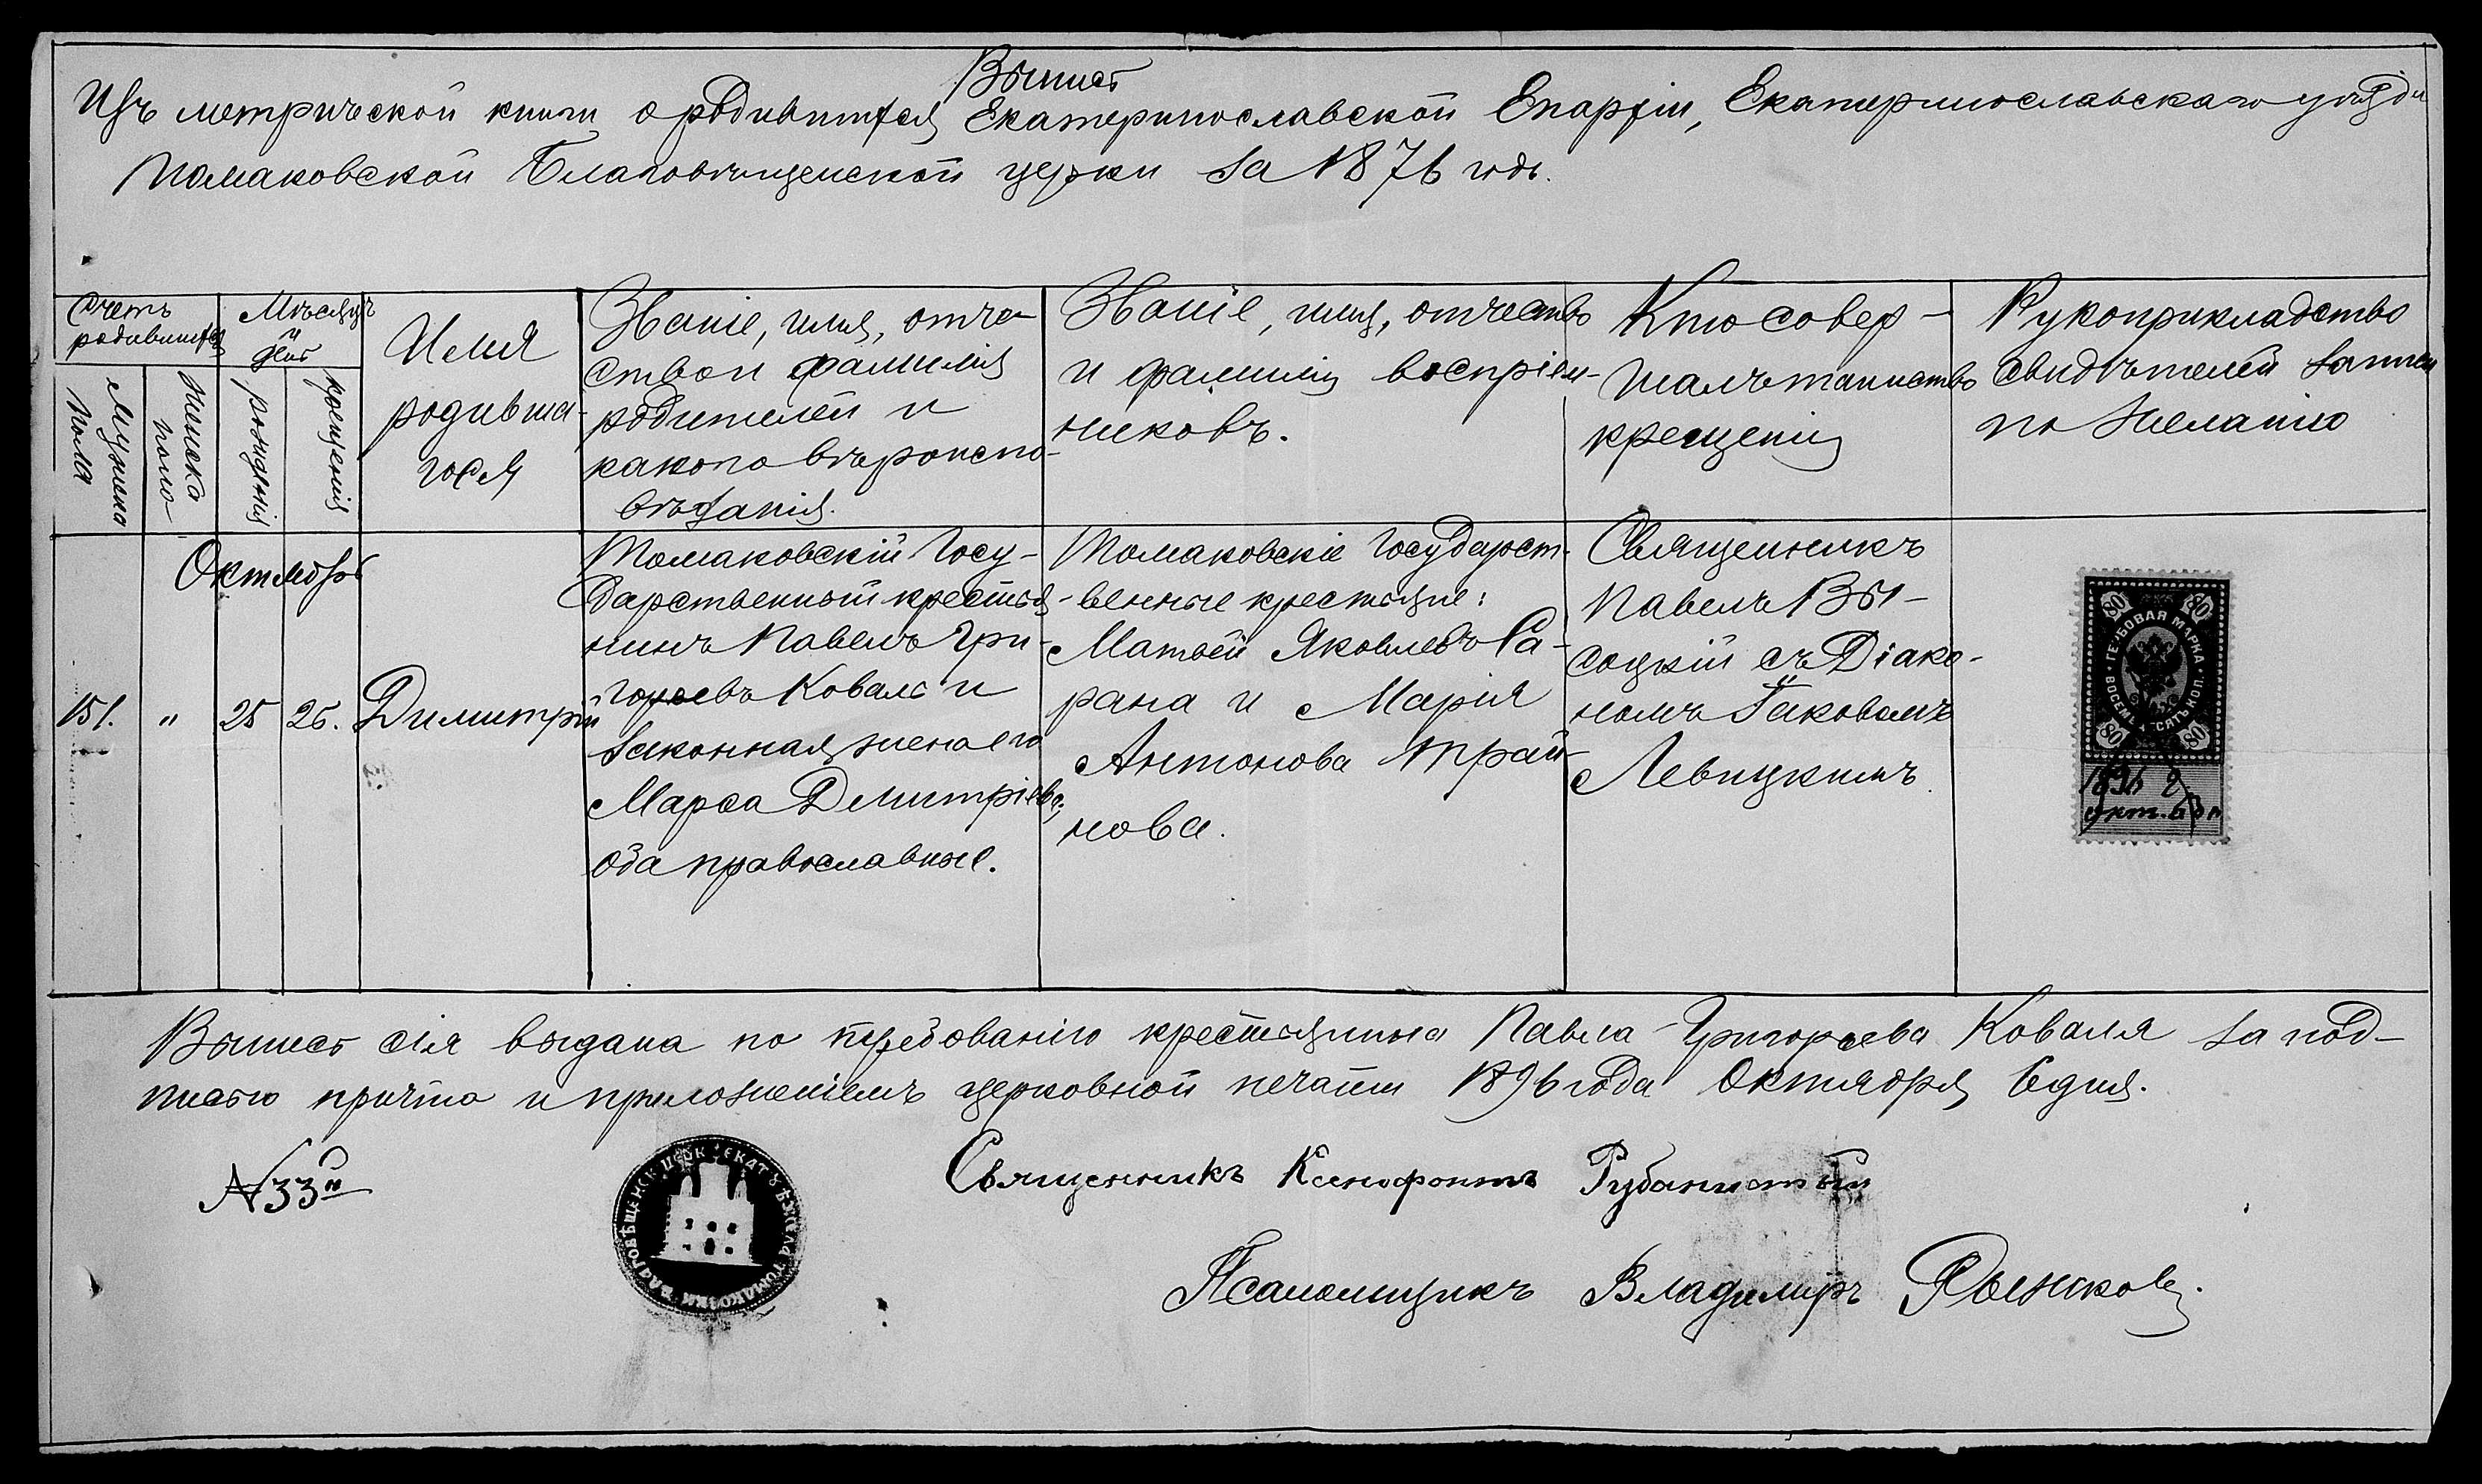 Выпись
Изъ метрической книги о родившихся Екатеринославской Епархіи, Екатеринославскаго уѣзда
Томаковской Благовѣщенской церкви за 1876 годъ.
Счетъ
родившихся
Мѣсяцъ
и
день
Мужеска
пола
Женска
пола
рожденія
крещенія
Имя
родивша-
гося
Званіе, имя, отче-
ство и фамилія
родителей и
какого вѣроиспо-
вѣданія.
Званіе, имя, отчество
и фамилія воспріем-
никовъ.
Кто совер-
шалъ таинство
крещенія
Рукоприкладство
свидѣтелей записи
по желанію
Октября
151.
"
25
26.
Димитрій
Томаковскій Госу-
дарственный крестья-
нинъ Павелъ Гри-
горьевъ Коваль и
законная жена его
Марѳа Димитріева,
оба православные.
Томаковскіе Государст-
венные крестьяне:
Матвей Яковлевъ Са-
рана и Марія
Антонова Трай-
нова.
Священникъ
Павелъ Вы-
соцкій съ Діако-
номъ Іаковомъ
Левицкимъ.
80 80
ГЕРБОВАЯ МАРКА
ВОСЕМЬДЕСЯТЪ КОП.
80 80
1896
окт. 6
Выпись сія выдана по требованію крестьянина Павла Григорьева Коваля за под-
писью причта и приложеніемъ церковной печати 1896 года Октября 6 дня.
N 33й
БЛАГОВѢЩЕНСК. ЦЕРК. ЕКАТ. У. СЕЛА ТОМАКОВКИ
Священникъ Ксенофонтъ Рубанистый
Псаломщикъ Владимиръ